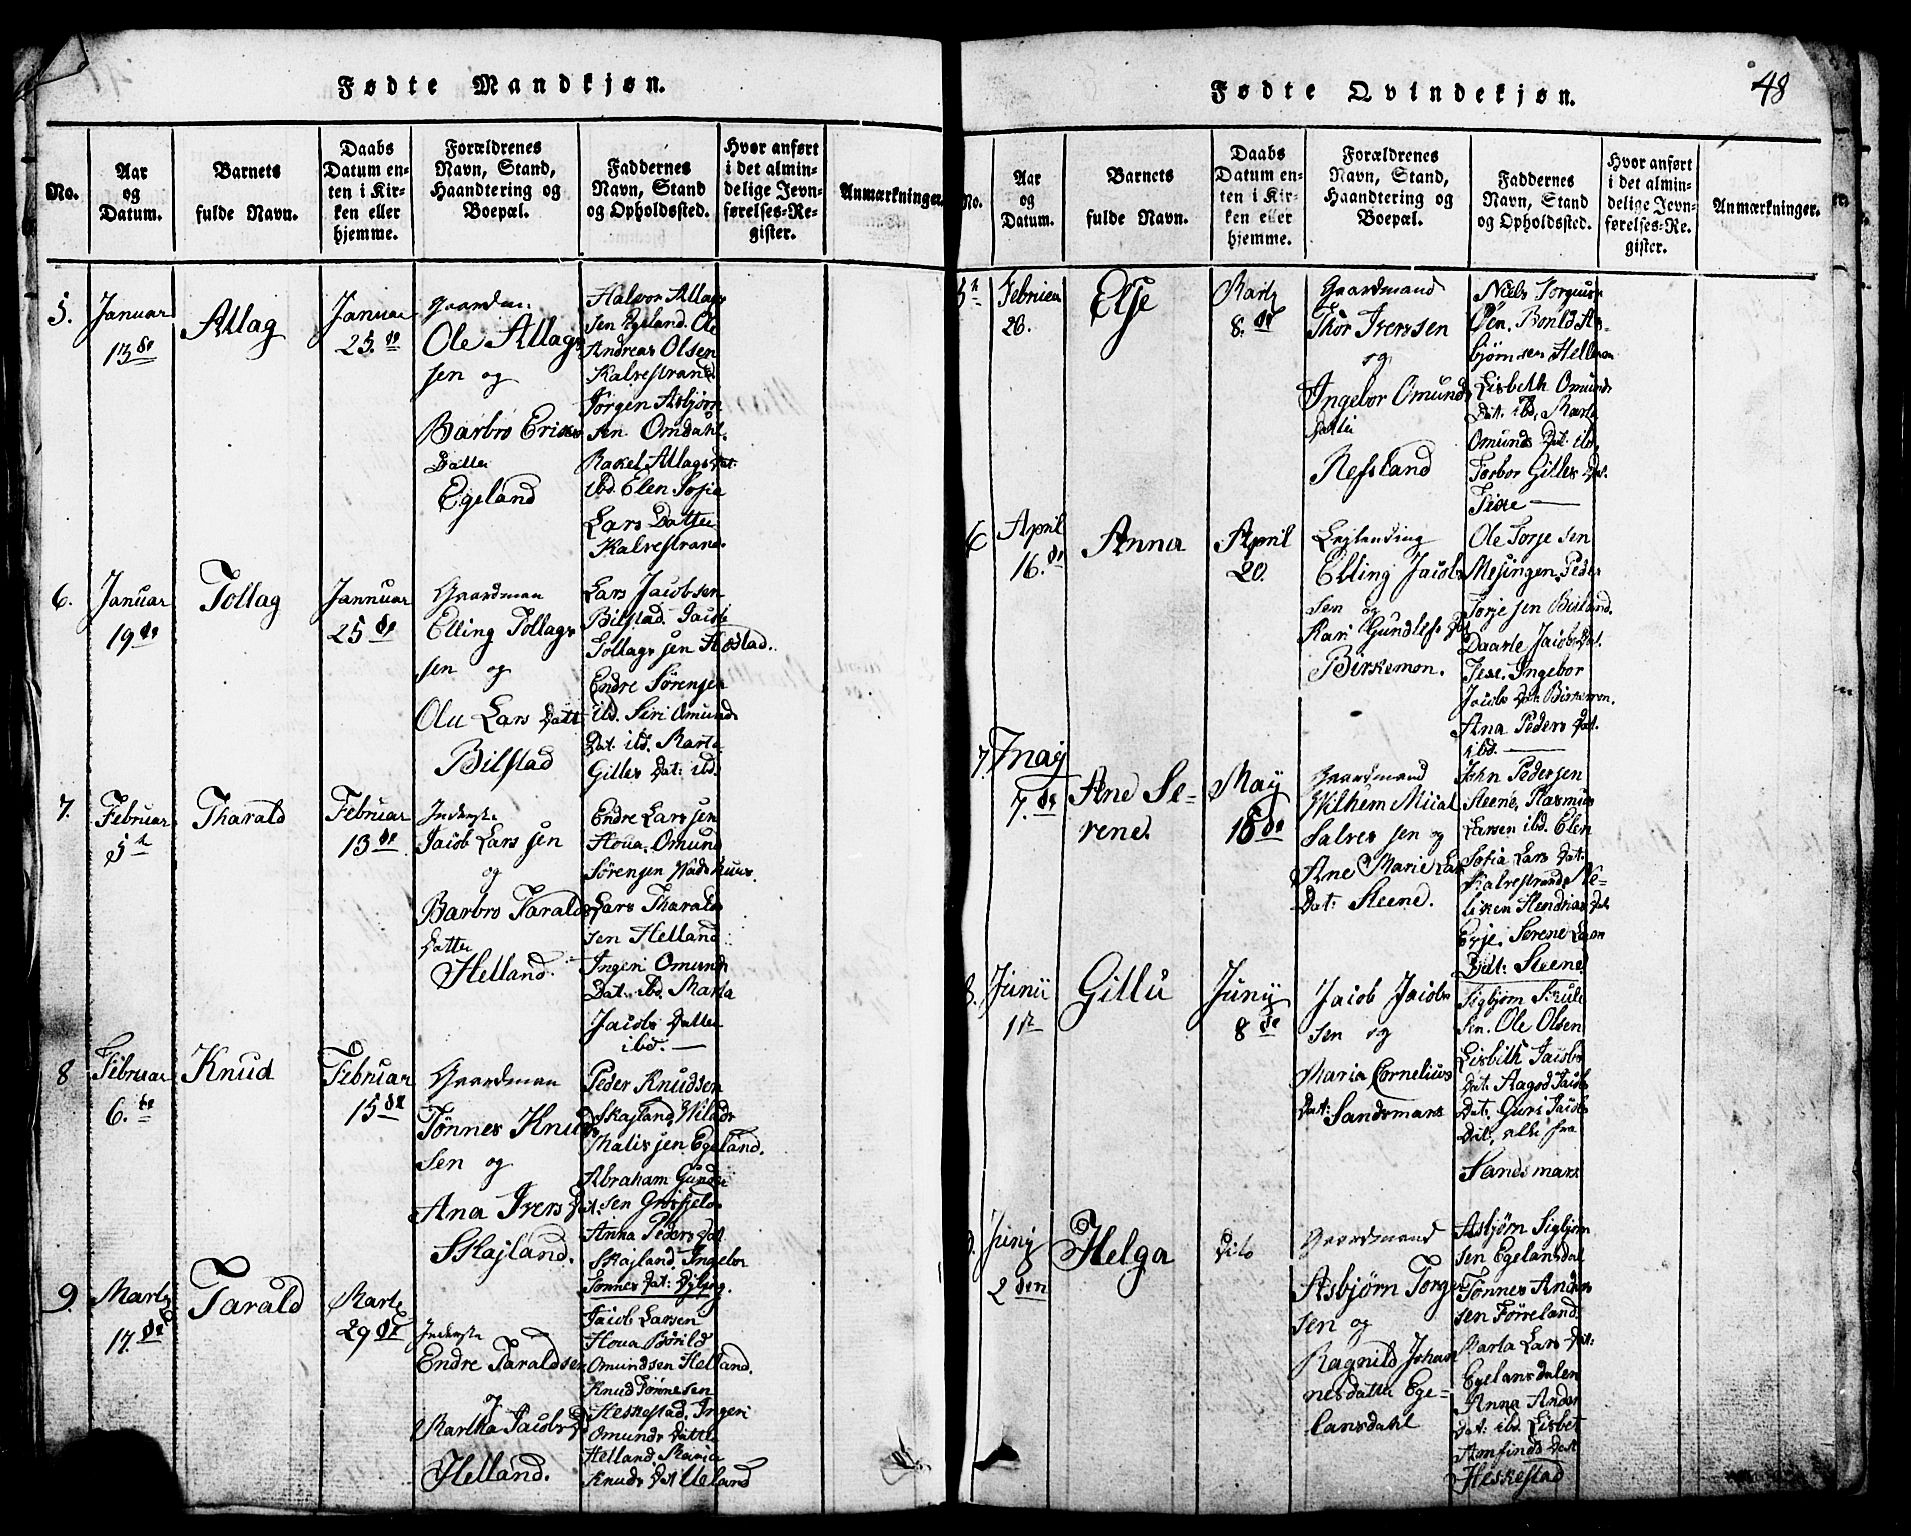 Fødte Mandkjøn.
No.
Aar
og
Datum.
Barnets
fulde Navn.
Daabs
Datum en-
ten i Kir-
ken eller
hjemme.
Forældrenes
Navn, Stand,
Haandtering og
Boepæl.
Faddernes
Navn, Stand
og Opholdssted.
Hvor anført
i det almin-
delige Jevn-
førelses-Re-
gister.
Anmærkninger.
5.
Januar
13de
Allag
Januar
25.de
Gaardman
Ole Allags
sen og
Barbro Erics
Datter
Egeland
Halvor Allags
sen Egeland. Ole
Andreas Olsen
Kalvestrand
Jørgen Asbjørn
sen Omdahl.
Rakel Allags Dat:
ibd. Elen Sofia
Lars Datter
Kalvestrand.
6.
Januar
19de
Tollag
Jannuar
25de
Gaardman
Elling Tollags
sen og
Lars Datt
Bilstad
Lars Jacobsen
Bilstad.
Tollags sen
Endre Sørensen
ibd. Siri Omunds
Dat. ibd. Marta
Gilles Dat: ibd.
7.
Februar
5t
Tharald
Februar
13de
Inderste
Jacob Lars sen
og
Barbro Taralds
Datter
Helland.
Endre Lars sen
Houa. Omund
Sørensen
Lars Tharalds
sen Helland
Ingeri Omunds
Dat. ibd. Marta
Jacobs Datter
ibd. —
8
Februar
6.te
Knud
Februar
15de
Gaardman
Tønnes Knuds
sen og
Ana Ivers Dat:
Skajland.
Peder Knudsen
Skajland,
Malis sen Egeland.
Abraham
sen
Anna Peders Dat.
Skajland. Ingebor
Tønnes Dat:
9.
Marts
17.de
Tarald
Marts
29de
Inderste
Endre Taraldsen
og
Martha Jacobs D
Helland.
Jacob Larsen
Houa Børild
Omundsen Helland.
Knud Tønnesen
Heskestad. Ingeri
Omunds Datter
Helland. Maria
Knuds Dat Ueland
Fødte Qvindekjøn.
48
No.
Aar
og
Datum.
Barnets
fulde Navn.
Daabs
Datum en-
ten i Kir-
ken eller
hjemme.
Forældrenes
Navn, Stand,
Haandtering og
Boepæl.
Faddernes
Navn, Stand
og Opholdssted.
Hvor anført
i det almin-
delige Jevn-
førelses-Re-
gister.
Anmærkninger.
5t
Februar
26.
Elje
Marts
8.de
Gaardmand
Thor Iversen
og
Ingebor Omunds
Datter
Refsland
Niels
Øen.
bjørnsen
Lisbeth Omunds
Dat. ibd, Marte
Omunds Dat ibd.
Torbor Gilles Dat.
6
April
16.de
Anna
April
20.
Leylending
Elling Jacobs
sen og
Kari Gundlefs D
Birkemon.
Ole Torje sen
Mesingen. Peder
Torje sen Birland.
Daarte Jacobs Dat.
Ingebor
Jacobs Dat Birkemon.
Ana Peders Dat.
ibd. —
7.
May
7.de
Ane Se-
rene.
May
18de
Gaardmand
Wilhem
Salves sen og
Ane Marie Lars
Dat: Steene.
John Pedersen
Steene, Rasmus
Larsen ibd. Elen
Sofia Lars Dat.
Kalvestrand.
Serene Lars
Dat: Steene
8.
Junii
1t
Gillu
Juny
8de
Jacob Jacobs
sen og
Maria Cornelius
Dat: Sandsmark
Sigbjørn
sen. Ole Olsen
Lisbith Jacobs
Dat. Aagod Jacobs
Dat. Guri Jacobs
Dat. alle fra
Sandsmark
9.
Juny
2den
Helga
Dito
Gaardmand
Asbjørn Torger
sen og
Ragnild Johan
nesdatter Ege-
lansdahl
Asbjørn Sigbjørn
sen Egelansdal
Tønnes Anders
sen Førreland.
Marta Lars Dat:
Egelansdalen
Anna Anders
Dat: ibd. Lisbet
Arnfinds Dat
Heskestad